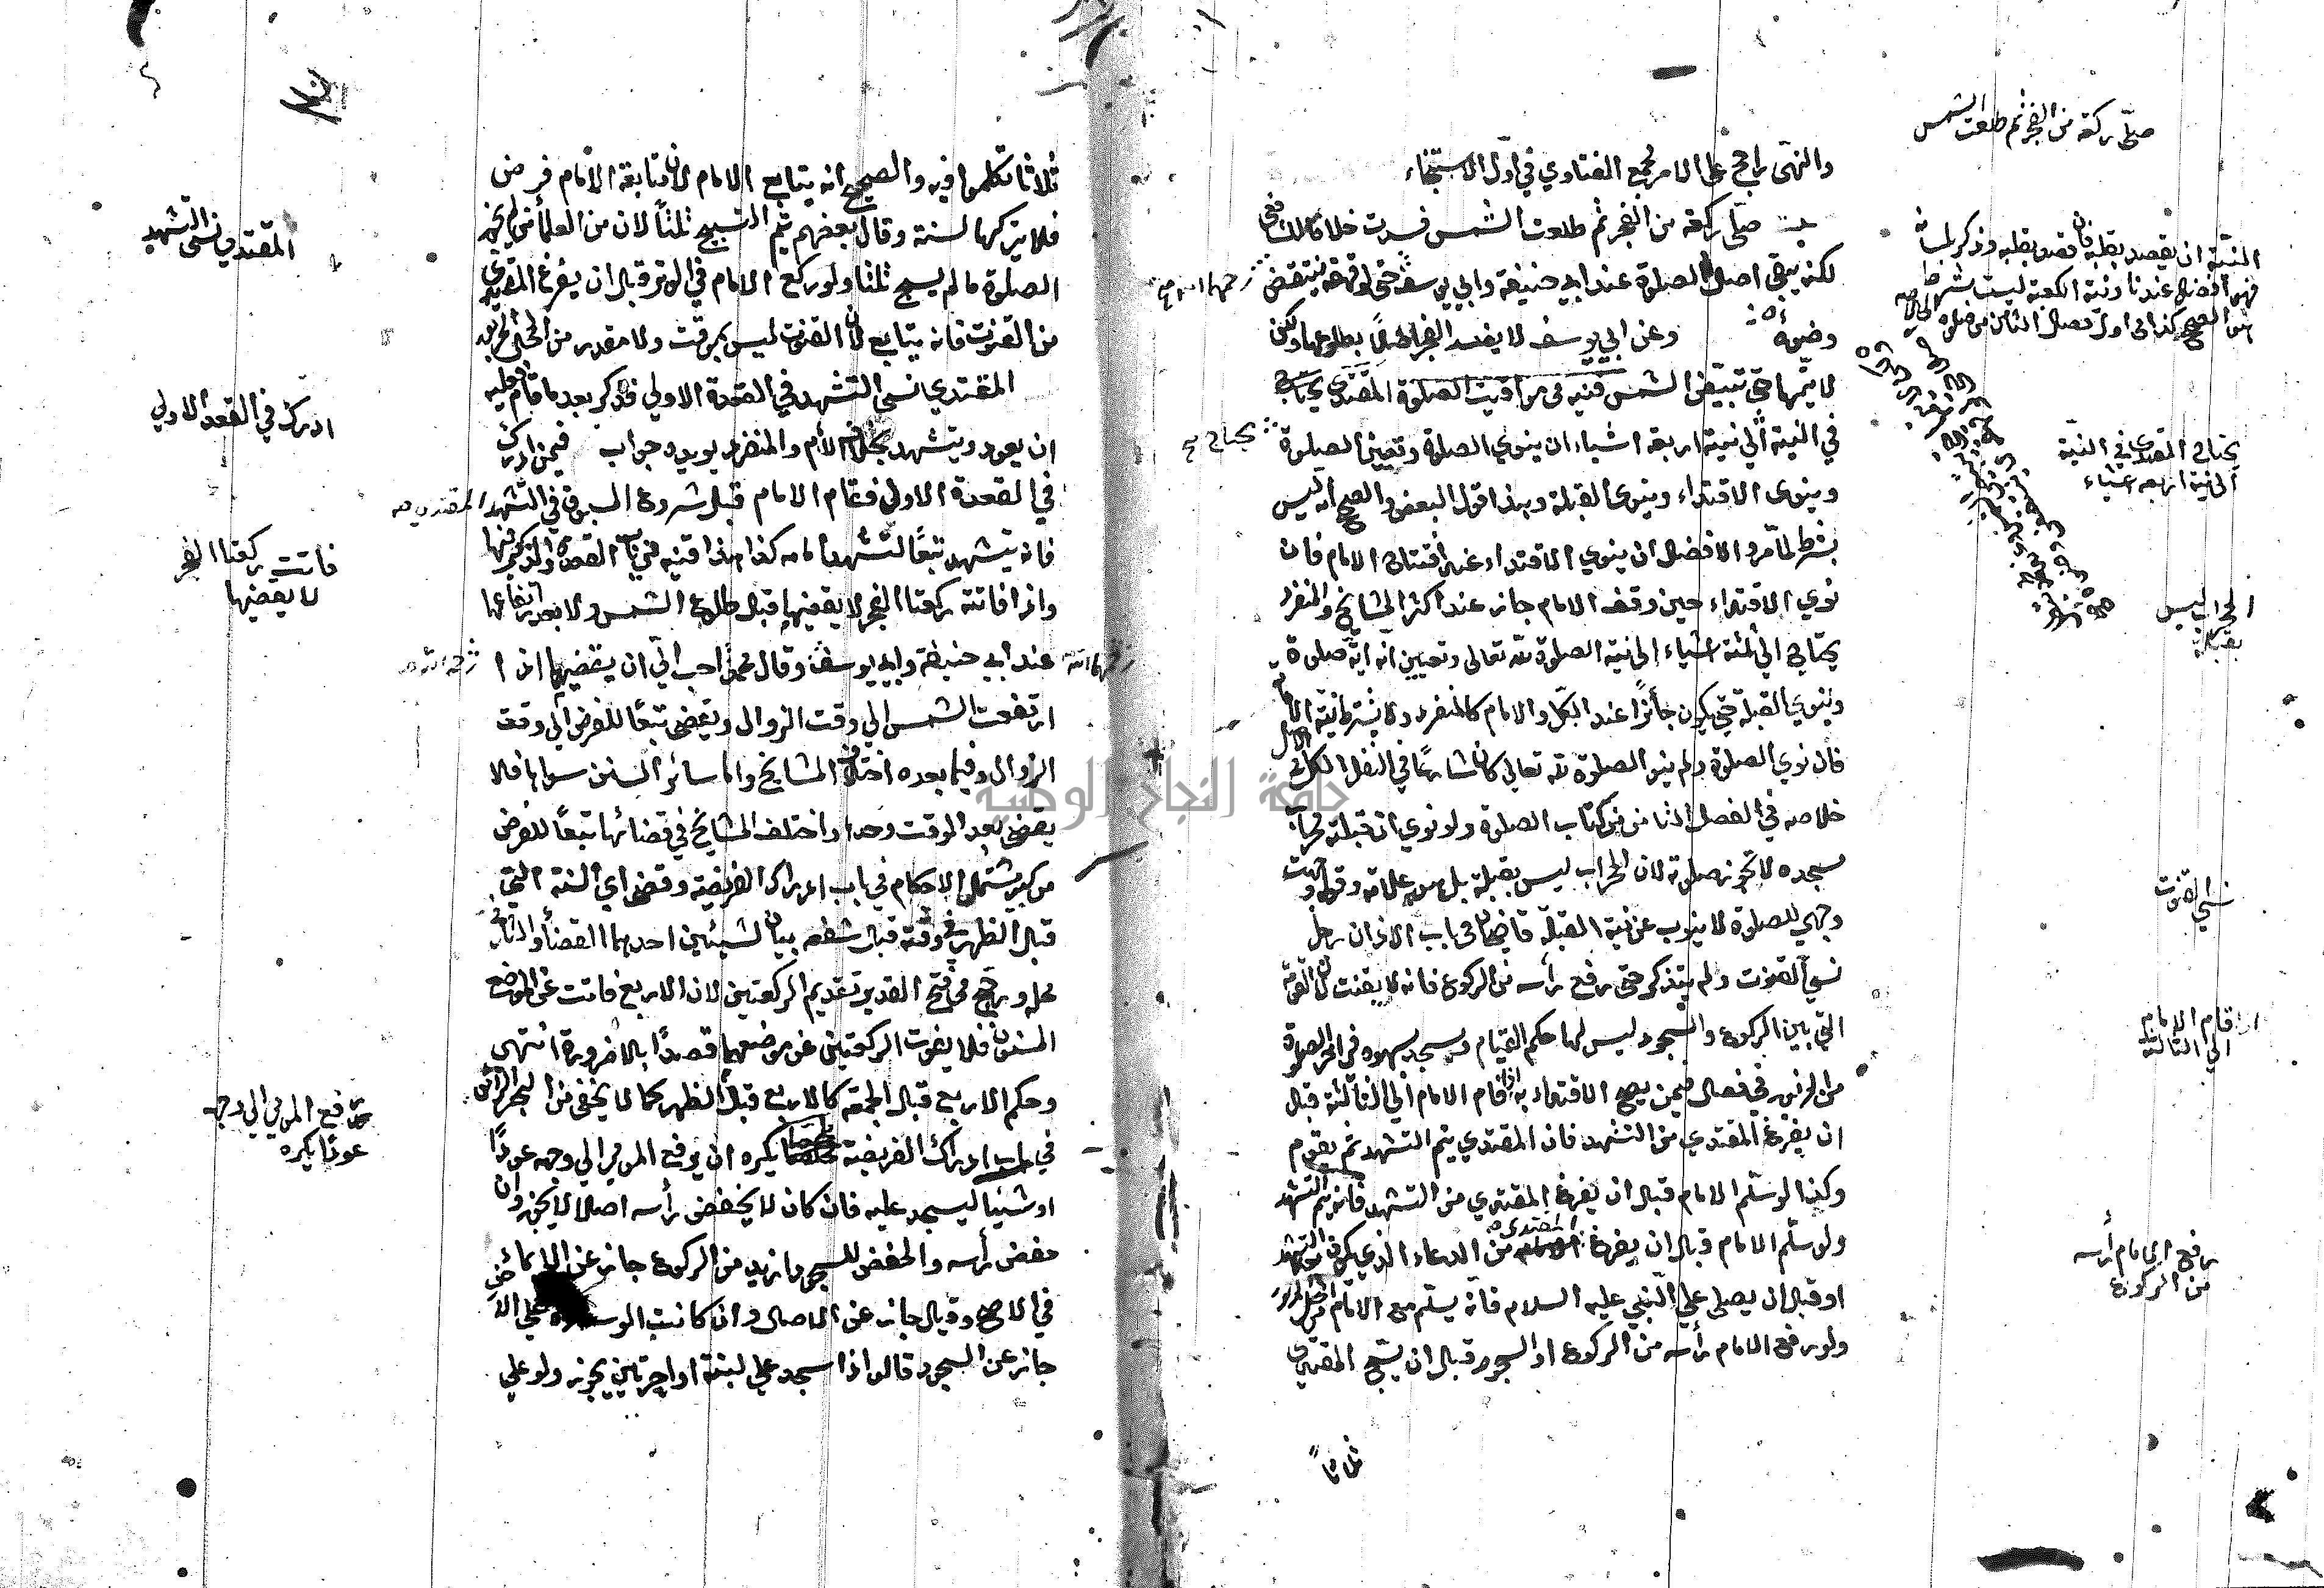 والنهى راجح على الامر مجمع الفتاوي في اول الاستنجاء
صلى ركعة من الفجر ثم طلعت الشمس فسدت خلافا للشافعي
لكنه يبقى اصل الصلوة عند ابي حنيفة وابي يوسف حتى لو قهقه ينتقض
وضوءه وعن ابي يوسف لا يفسد الفجر بطلوعها ولكن
لا يتمها حتى تبيض الشمس قنيه في مواقيت الصلوة المقتدي يحتاج
في النية الي نية اربعة اشياء ان ينوي الصلوة وتعيين الصلوة
وينوى الاقتداء وينوى القبلة وهذا قول البعض والصحيح انه ليس
بشرط لما مر والافضل ان ينوي الاقتداء عند افتتاح الامام فان
نوي الاقتداء حين وقف الامام جاز عند اكثر المشايخ والمنفرد
يحتاج الي ثلثة اشياء الى نية الصلوة لله تعالى وتعيين انه اية صلوة
وينوي القبلة حتى يكون جائزا عند الكل والامام كالمنفرد ولا يشترط نية الامامة
فان نوي الصلوة ولم ينو الصلوة لله تعالى كان شارعا في النفل الكل في
خلاصه في الفصل الثامن من كتاب الصلوة ولو نوي ان قبلته محراب
مسجده لا تجوز صلوته لان المحراب ليس بقبلة بل هو علامة وقوله وجهت
وجهي للصلوة لا ينوب عن نية القبلة قاضيخان في باب الاذان رجل
نسي القنوت ولم يتذكر حتى رفع رأسه من الركوع فانه لا يقنت لان القومة
التي بين الركوع والسجود ليس لها حكم القيام ويسجد لسهوه في اخر الصلوة
من المزبور في فصل فيمن يصح الاقتداء به اذا قام الامام الي الثالثة قبل
ان يفرغ المقتدي من التشهد فان المقتدي يتم التشهد ثم يقوم
وكذا لو سلم الامام قبل ان يفرغ المقتدي من التشهد فانه يتم التشهد
ولو سلم الامام قبل ان يفرغ المقتدي من الدعاء الذي يكون بعد التشهد
او قبل ان يصلى على النبي عليه السلام فانه يسلم مع الامام من المزبور
ولو رفع الامام رأسه من الركوع او السجود قبل ان يسبح المقتدي
ثلاثا
صلى ركعة من الفجر ثم طلعت الشمس
النية ان يقصد بقلبه فان قصد بقلبه وذكر بلسانه
فهو افضل عندنا ونية الكعبة ليست بشرط
هو الصحيح كذا فى اول فصل الثامن من صلوة الخلاصه
يحتاج المقتدي في النية
الى نية اربعة اشياء
المحراب ليس
بقبلة
نسي القنوت
اذا قام الامام
الي الثالثة
رفع الامام رأسه
من الركوع
رحمهما الله
يحتاج
ثلاثا تكلموا فيه والصحيح انه يتابع الامام لان متابعة الامام فرض
فلا يتركها لسنة وقال بعضهم يتم التسبيح ثلثا لان من العلماء من لم يجز
الصلوة ما لم يسبح ثلثا ولو ركع الامام في الوتر قبل ان يفرغ المقتدي
من القنوت فانه يتابع لان القنوت ليس بموقت ولا مقدر من المحل المزبور
المقتدي نسى التشهد في القعدة الاولي فذكر بعد ما قام عليه
ان يعود ويتشهد بخلاف الامام والمنفرد يويده جواب فيمن ادرك
في القعدة الاولى فقام الامام قبل شروع المسبوق في التشهد
فانه يتشهد تبعا لتشهد امامه كذا هذا قنيه في باب القعدة والذكر فيها
واذا فاتته ركعتا الفجر لا يقضيها قبل طلوع الشمس ولا بعد ارتفاعها
عند ابي حنيفة وابي يوسف وقال محمد احب الي ان يقضيهما اذا
ارتفعت الشمس الي وقت الزوال وتقضى تبعا للفرض الي وقت
الزوال وفيما بعده اختلاف المشايخ واما سائر السنن سواها فلا
يقضى بعد الوقت وحدها واختلف المشايخ في قضائها تبعا للفرض
من كبير مشتمل الاحكام في باب ادراك الفريضة وقضى اي السنة التي
قبل الظهر في وقته قبل شفعه بيان لشيئين احدهما القضاء والثاني
محله ورجح في فتح القدير تقديم الركعتين لان الاربع فاتت عن الموضع
المسنون فلا يفوت الركعتين عن موضعهما قصدا بلا ضرورة انتهى
وحكم الاربع قبل الجمعة كالاربع قبل الظهر كما لا يخفى من البحر الرائق
في باب ادراك الفريضة يكره ان يرفع المومي الي وجهه عودا
او شيئا ليسجد عليه فان كان لا يخفض رأسه اصلا لا يجز وان
خفض رأسه والخفض للسجود ازيد من الركوع جاز عن الايماء
في الاصح وقيل جاز عن الاصل وان كانت الوسادة علي الارض
جاز عن السجود قالوا اذا سجد علي لبنة او اجرتين يجوز ولو علي
المقتدي نسى التشهد
ادرك في القعدة الاولي
المقتدي صه
فاتت ركعتا الفجر
لا يقضيها
رحمهما الله
رحمه الله صه
يرفع المومي الي وجهه
عودا يكره
جامعة النجاح الوطنية